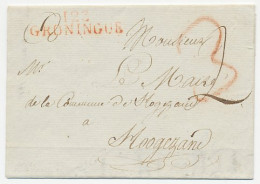 123
GRONINGUE
Monsieur
Mr.
Maire
de la Commune de Hogezand
à
Hoogezand